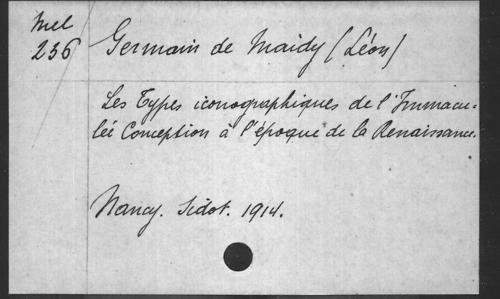 Mel
236
Germain de Maidy (Léon)
Les Types iconographiques de l'Immacu-
lée Conception à l'époque de la Renaissance.
Nancy. Sidot. 1914.